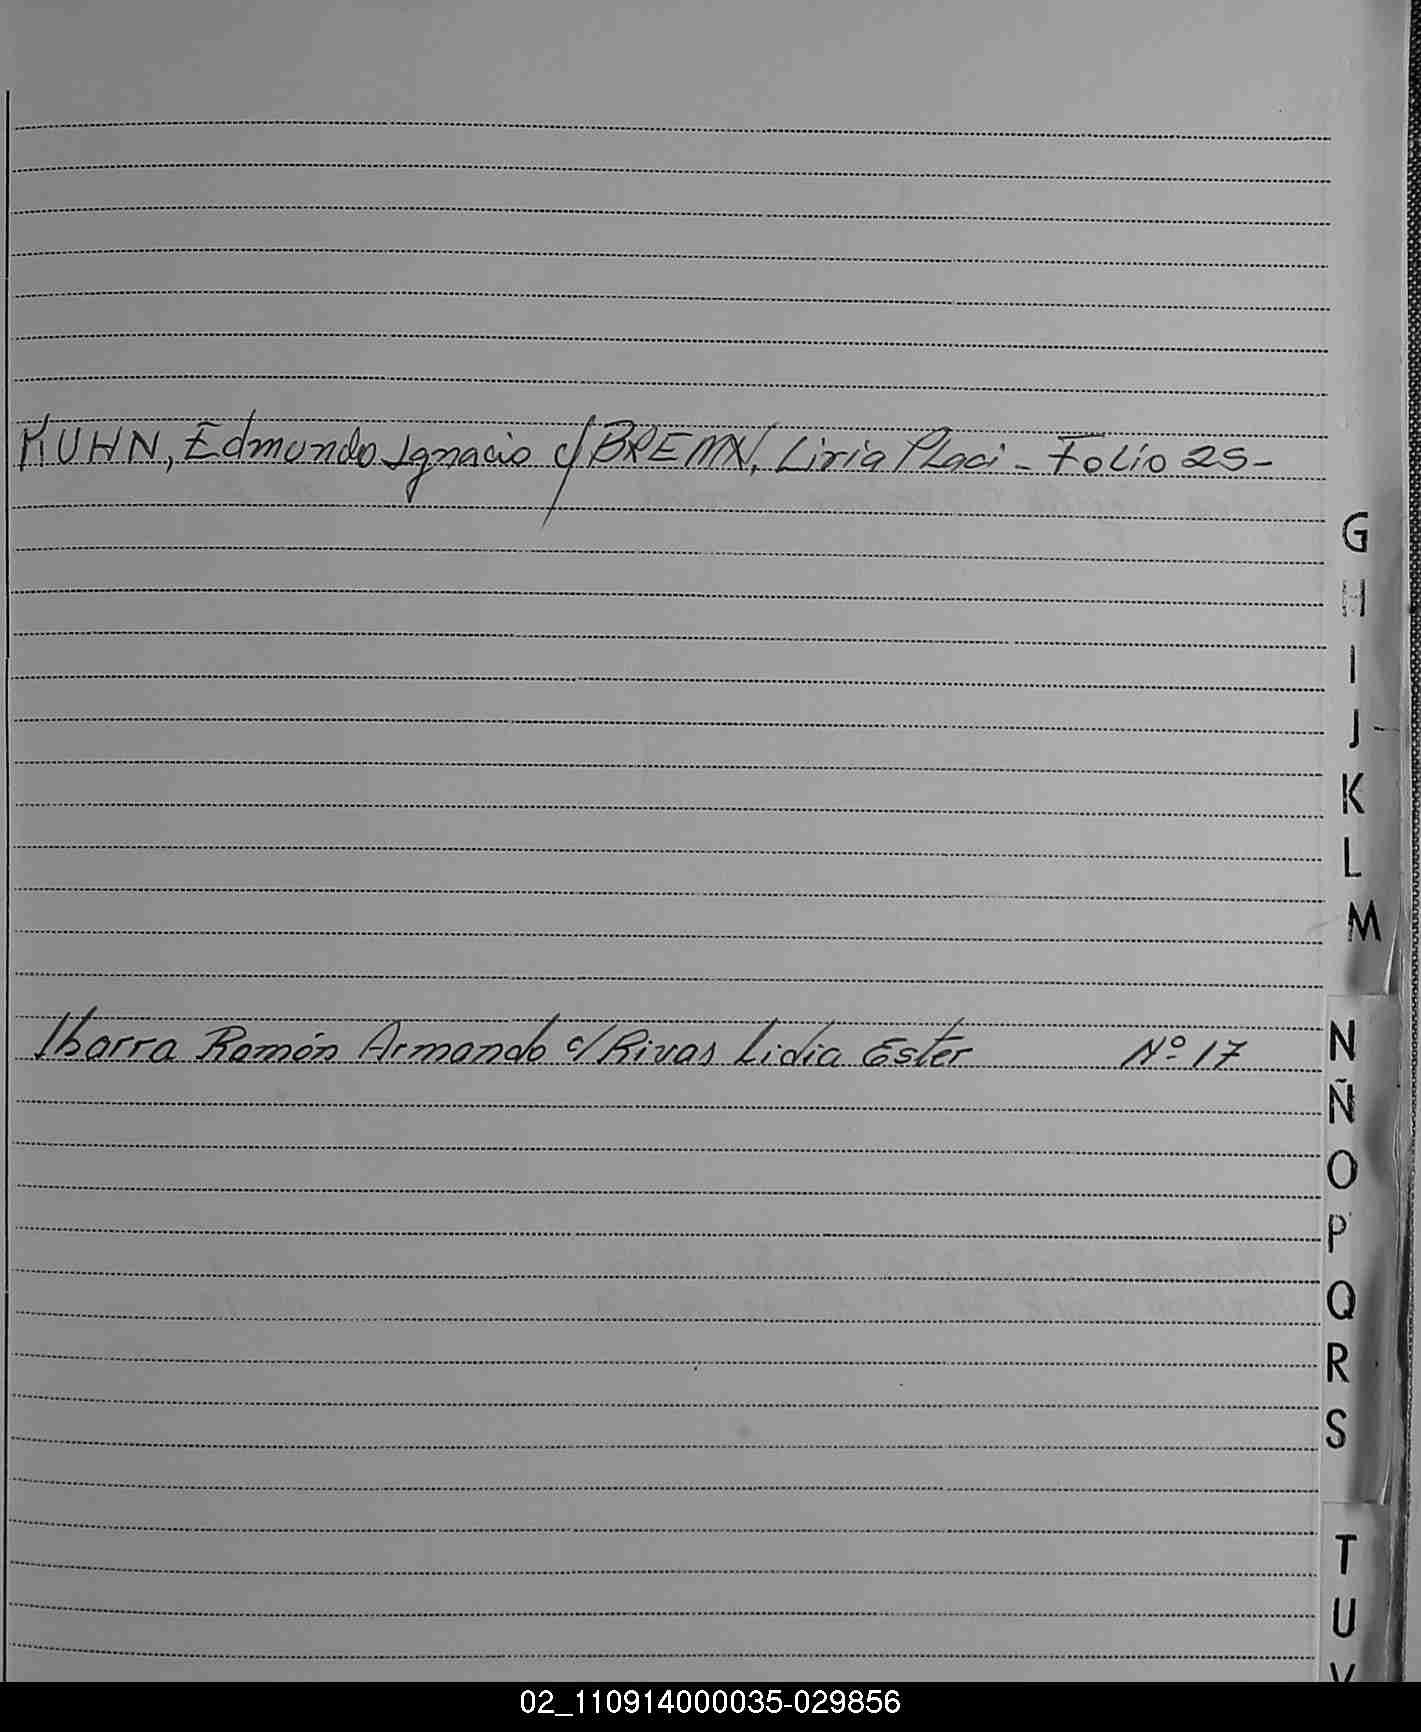 KUHN, Edmundo Ignacio c/ Liria Placi - Folio 25-
G
H
I
J
K
L
M
Ibarra Ramón Armando c/ Rivas Lidia Ester Nº 17
N
Ñ
O
P
Q
R
S
T
U
V
02_110914000035-029856